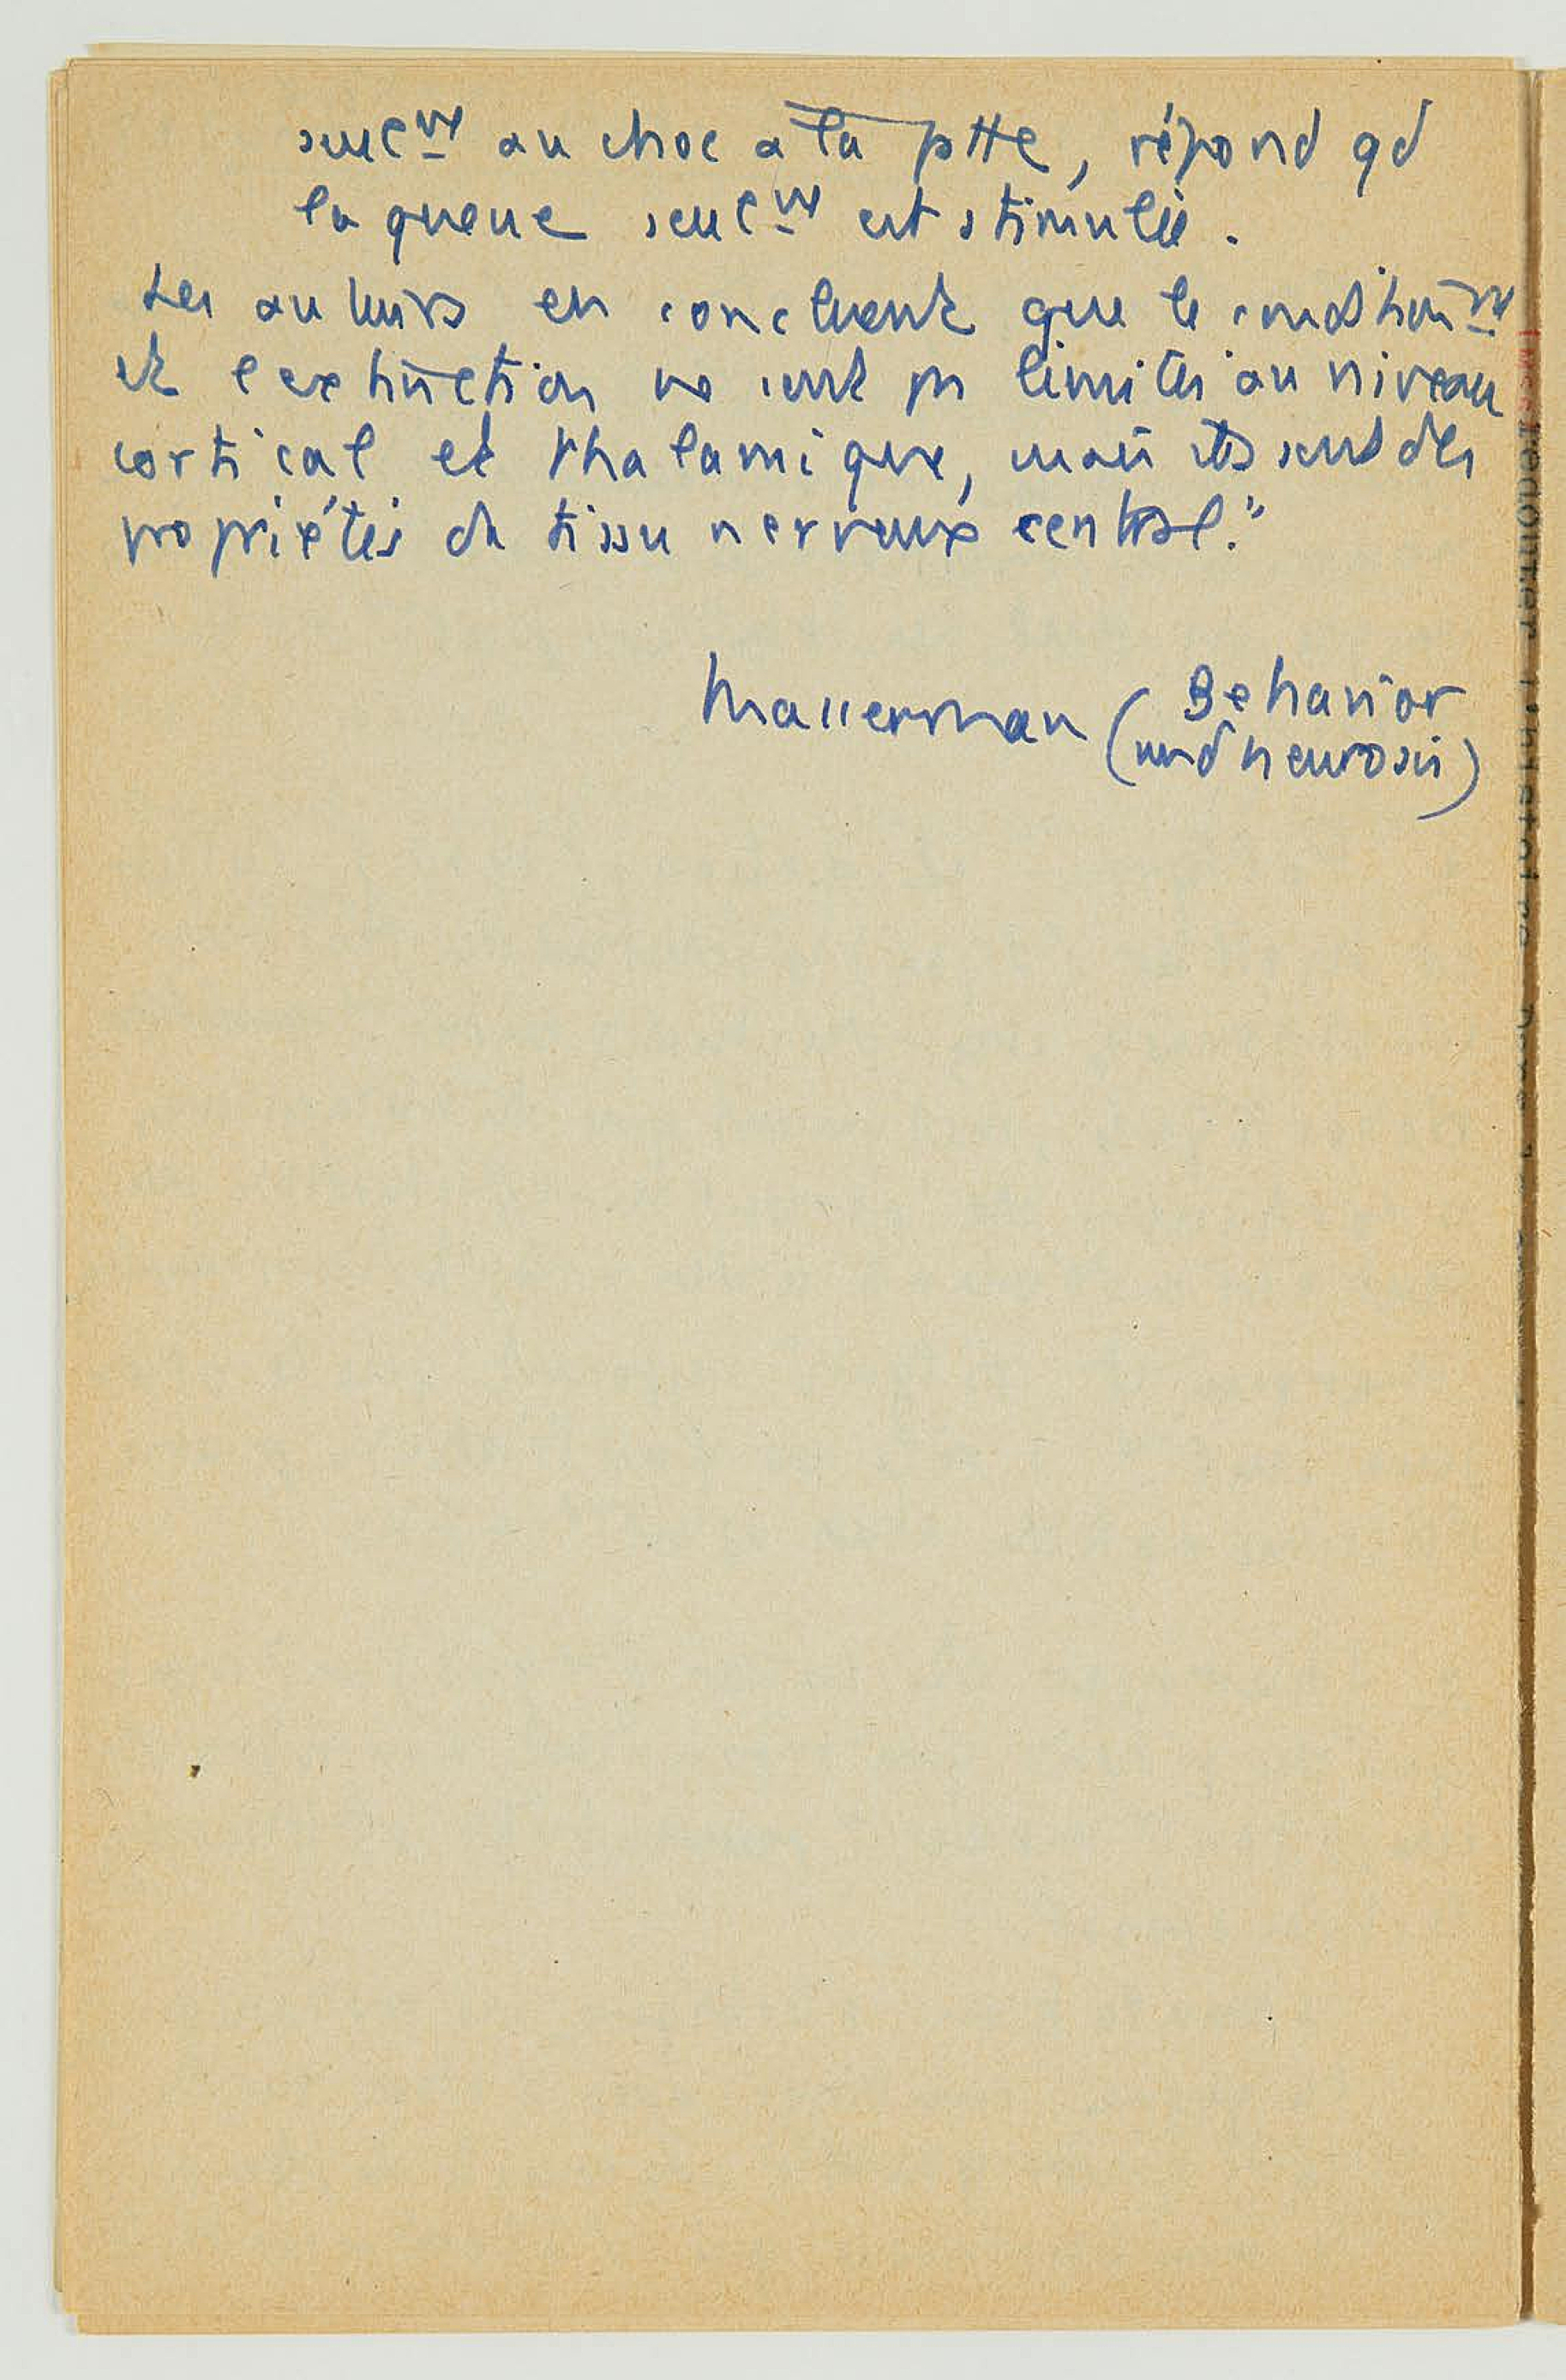 seulᵐᵗ au choc a la ptte, répond qd
la queue seulᵐᵗ est stimulée.
Les auteurs en concluent que le conditionᵐᵗ
et l extinction ne sont ps limités au niveau
cortical et thalamique, mais ils sont des
propriétés du tissu nerveux central."
Masserman (Behavior
and neurosis)